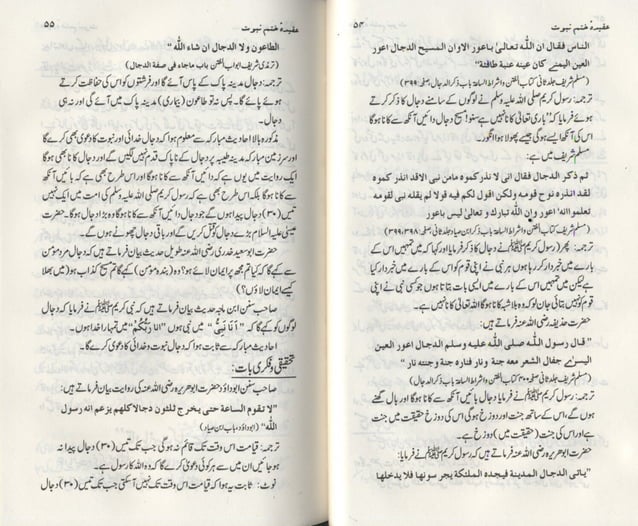 ۵۴ عقیدۂ ختم نبوت
الناس فقال ان اللّٰہ تعالیٰ باعور الاوان المسیح الدجال اعور
العین الیمنٰے کان عینہ عنبۃ طافئۃ"
(مسلم شریف جلد ثانی کتاب الفتن واشراط الساعۃ باب ذکر الدجال صفحہ ۳۹۹)
ترجمہ: رسول کریم صلی اللہ علیہ وسلم نے لوگوں کے سامنے دجال کا ذکر کرتے
ہوئے فرمایا کہ "باری تعالیٰ کانا نہیں ہے سنو! مسیح دجال دائیں آنکھ سے کانا ہوگا
اس کی آنکھ ایسے ہوگی جیسے پھولا ہوا انگور۔
مسلم شریف میں ہے:
ثم ذکر الدجال فقال انی لا نذر کموہ مامن نبی الاقد انذر کموہ
لقد انذرہ نوح قومہ ولکن اقول لکم فیہ قولا لم یقلہ نبی لقومہ
تعلموا انہ اعور وان اللّٰہ تبارك و تعالیٰ لیس باعور
ترجمہ: پھر (رسول کریم ﷺ نے) دجال کا ذکر فرمایا اور کہا کہ میں تمہیں اس کے
بارے میں خبردار کر رہا ہوں ہر نبی نے اپنی قوم کو اس کے بارے میں خبردار کیا
ہے لیکن میں تمہیں اس کے بارے میں ایسی بات بتاتا ہوں جو کسی نبی نے اپنی
قوم کو نہیں بتائی جان لو کہ وہ بلاشبہ کانا ہوگا اللہ تعالیٰ کانا نہیں ہے۔
حضرت حذیفہ رضی اللہ عنہ فرماتے ہیں:
"قال رسول اللّٰہ صلی اللّٰہ علیہ وسلم الدجال اعور العین
الیسرٰے جفال الشعر معہ جنۃ ونار فنارہ جنۃ وجنتہ نار"
(مسلم شریف صفحہ ۴۰۰ کتاب الفتن واشراط الساعۃ باب ذکر الدجال)
ترجمہ: رسول کریم ﷺ نے فرمایا دجال بائیں آنکھ سے کانا ہوگا اور بال گھنے
ہوں گے، اس کے ساتھ جنت اور دوزخ ہوگی اس کی دوزخ حقیقت میں جنت
ہے اور اس کی جنت (حقیقت میں) دوزخ ہے۔
حضرت ابوھریرہ رضی اللہ عنہ فرماتے ہیں کہ رسول کریم ﷺ نے فرمایا:
"یاتی الدجال المدینۃ فیجدہ الملئکۃ یجر سونھا فلا یدخلھا
عقیدۂ ختم نبوت ۵۵
الطاعون ولا الدجال ان شاء اللّٰہ"
(ترمذی شریف ابواب الفتن باب ماجاء فی صفۃ الدجال)
ترجمہ: دجال مدینہ پاک کے پاس آئے گا اور فرشتوں کو اس کی حفاظت کرتے
ہوئے پائے گا۔ پس نہ تو طاعون (بیماری) مدینہ پاک میں آئے گی اور نہ ہی
دجال۔
مذکورہ بالا احادیث مبارکہ سے معلوم ہوا کہ دجال خدائی اور نبوت کا دعویٰ بھی کرے گا
اور سرزمین مبارکہ مدینہ طیبہ پر دجال کے ناپاک قدم نہیں لگیں گے اور دجال کانا بھی ہوگا
ایک روایت میں یوں ہے کہ دائیں آنکھ سے کانا ہوگا اور اس طرح بھی ہے کہ بائیں آنکھ
سے کانا ہوگا بلکہ اس طرح بھی ہے کہ رسول کریم صلی اللہ علیہ وسلم کی امت میں ایک نہیں
تیس (۳۰) دجال پیدا ہوں گے جو دجال دائیں آنکھ سے کانا ہوگا وہ بڑا دجال ہوگا۔ حضرت
عیسیٰ علیہ السلام بڑے دجال کو قتل کریں گے اور باقی دجال چھوٹے ہوں گے۔
حضرت ابوسعید خدری رضی اللہ عنہ طویل حدیث بیان فرماتے ہیں کہ دجال مرد مومن
سے کہے گا کہ کیا تم مجھ پر ایمان لاتے ہو؟ وہ (بندہ مؤمن) کہے گا تم مسیح کذاب ہو (میں بھلا
کیسے ایمان لاؤں؟)
صاحب سنن ابن ماجہ حدیث بیان فرماتے ہیں کہ نبی کریم ﷺ نے فرمایا کہ دجال
لوگوں کو کہے گا کہ "اَنَا نَبِیٌّ" میں نبی ہوں "اَنَا رَبُّکُمْ" میں تمہارا خدا ہوں۔
احادیث مبارکہ سے ثابت ہوا کہ دجال نبوت و خدائی کا دعویٰ کرے گا۔
تحقیقی و فکری بات:
صاحب سنن ابوداؤد حضرت ابوھریرہ رضی اللہ عنہ کی روایت بیان فرماتے ہیں:
"لا تقوم الساعۃ حتی یخرج ثلثون دجالا کلھم یزعم انہ رسول
اللّٰہ" (ابوداؤد، باب ابن صیاد)
ترجمہ: قیامت اس وقت تک قائم نہ ہوگی جب تک تیس (۳۰) دجال پیدا نہ
ہو جائیں ان میں سے ہر کوئی دعویٰ کرے گا کہ وہ اللہ کا رسول ہے۔
نوٹ: ثابت یہ ہوا کہ قیامت اس وقت تک نہیں آسکتی جب تک تیس (۳۰) دجال